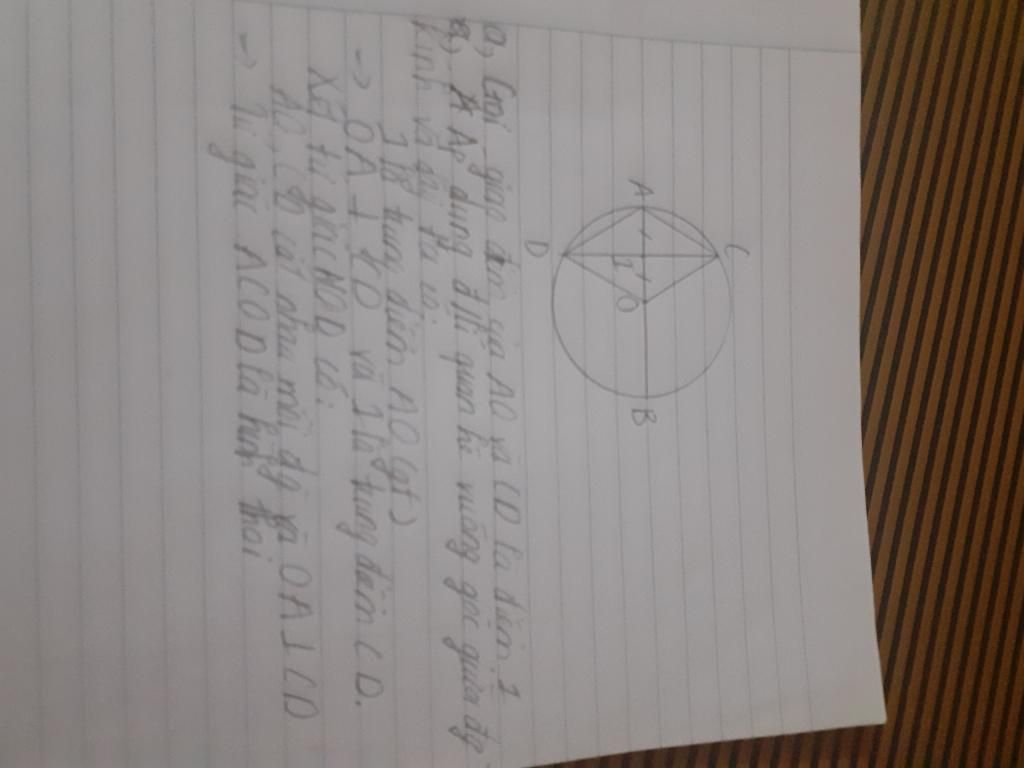 A
C
D
I
O
B
a, Gọi giao điểm của AO và CD là điểm I
Áp dụng đlí quan hệ vuông góc giữa đg
kính và dây ta có:
I là trung điểm AO (gt)
→ OA ⊥ CD và I là trung điểm CD.
Xét tứ giác ACOD có:
AO, CD cắt nhau mỗi đg và OA ⊥ CD
→ Tứ giác ACOD là hình thoi